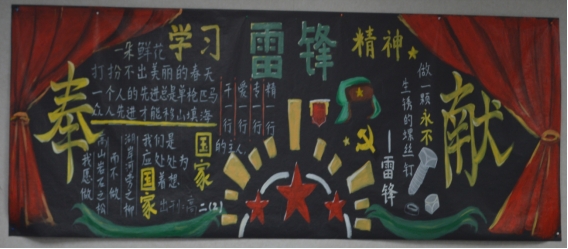 学习雷锋精神
奉献
一朵鲜花
打扮不出美丽的春天
一个人的先进总是单枪匹马
众人先进才能移山填海
干一行
爱一行
专一行
精一行
我愿做
高山岩石之松
而不做
湖岸河旁之柳
我们是国家的主人
应处处为
国家着想
高二(2)
做一颗永不
生锈的螺丝钉
—雷锋